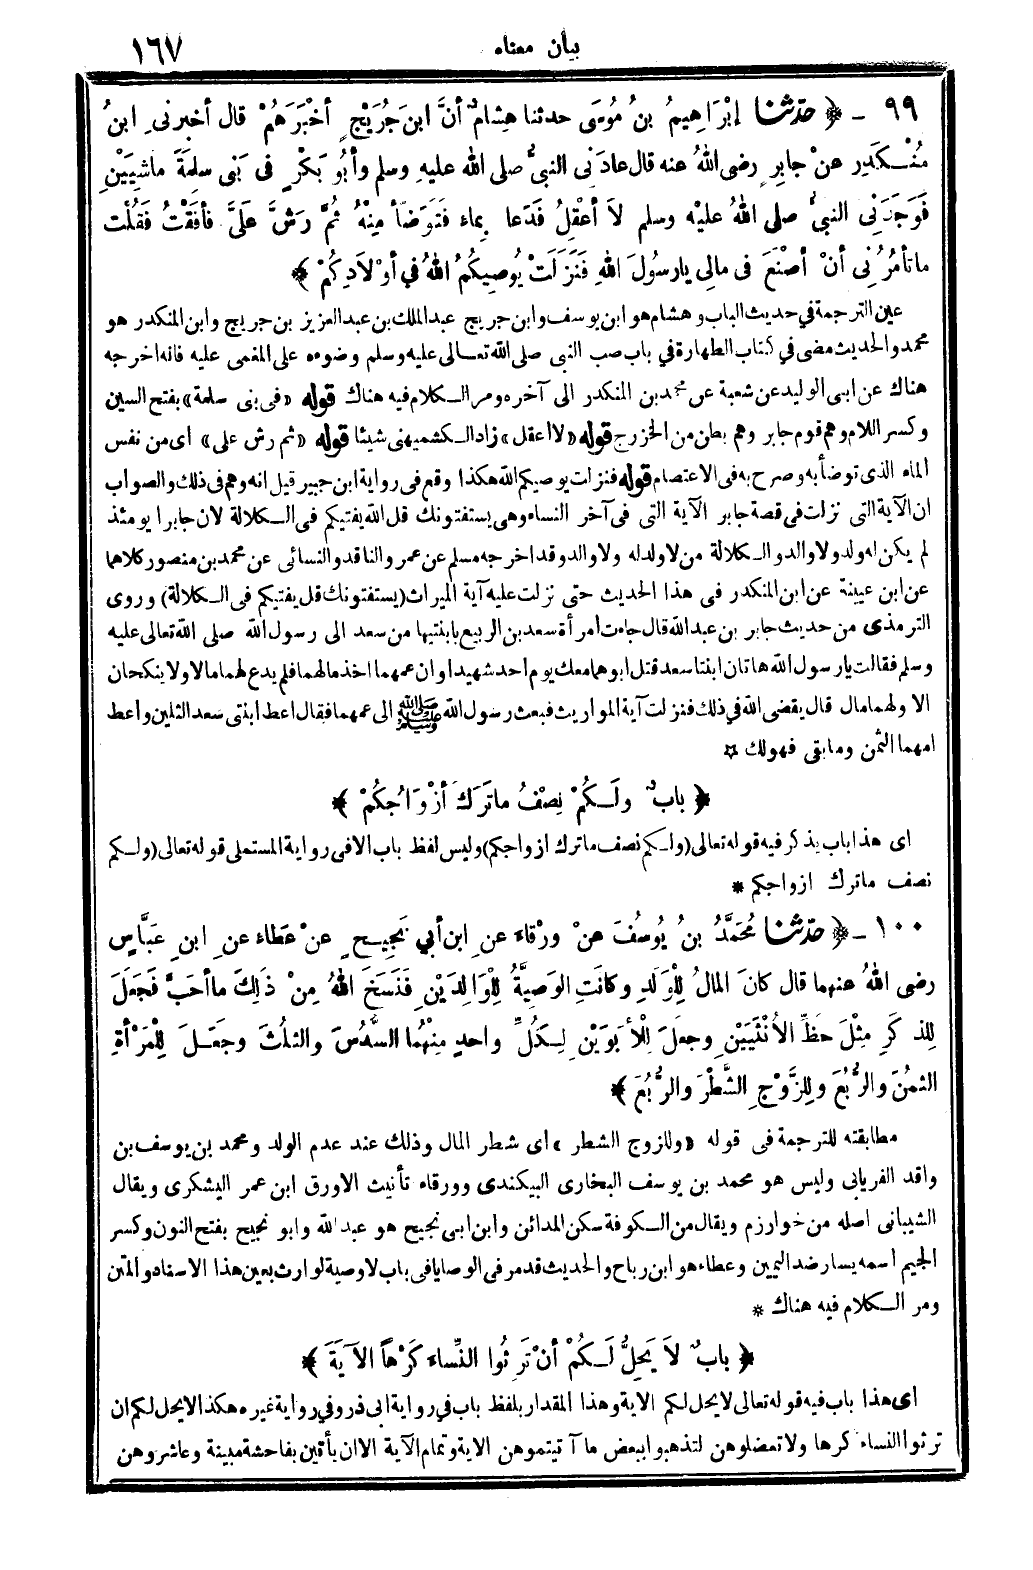 بيان معناه ١٦٧
٩٩ - ﴿ حَدَّثَنَا إبْرَاهِيمُ بنُ مُوسَى حدثنا هِشامٌ أنَّ ابنَ جُرَيْجٍ أخْبَرَهُمْ قال أخبرنِى ابنُ
مُنْكَدِرٍ عنْ جابِرٍ رضى اللهُ عنه قال عادَنِى النبىُّ صلى الله عليهِ وسلم وأبُو بَكْرٍ فى بَنِى سلِمَةَ ماشِيَيْنِ
فَوَجَدَنِى النبىُّ صلى اللهُ عليْه وسلم لاَ أعْقِلُ فَدَعا بِماء فَتَوَضّأ مِنْهُ ثُمَّ رَشَّ عَلَىَّ فأفَقْتُ فَقُلْت
ماتأمُرُنِى أنْ أصْنَعَ فى مالِى يارسُولَ اللهِ فَنَزَلَتْ يُوصِيكُمُ اللهُ فِي أوْلاَدِكُمْ ﴾
عين الترجمة في حديث الباب وهشام هو ابن يوسف وابن جريج عبد الملك بن عبد العزيز بن جريج وابن المنكدر هو
محمد والحديث مضى في كتاب الطهارة في باب صب النبى صلى الله تعالى عليه وسلم وضوءه على المغمى عليه فانه اخرجه
هناك عن ابى الوليد عن شعبة عن محمد بن المنكدر الى آخره ومر الكلام فيه هناك قوله «فى بنى سلمة» بفتح السين
وكسر اللام وهم قوم جابر وهم بطن من الخزرج قوله «لا اعقل» زاد الكشميهنى شيئا قوله «ثم رش على» اى من نفس
الماء الذى توضأ به وصرح به فى الاعتصام قوله فنزلت يوصيكم الله هكذا وقع فى رواية ابن جبير قيل انه وهم فى ذلك والصواب
ان الآية التى نزلت فى قصة جابر الآية التى فى آخر النساء وهى يستفتونك قل الله يفتيكم فى الكلالة لان جابرا يومئذ
لم يكن له ولد ولا والد والكلالة من لا ولد له ولا والد وقد اخرجه مسلم عن عمرو الناقد والنسائى عن محمد بن منصور كلاهما
عن ابن عيينة عن ابن المنكدر فى هذا الحديث حتى نزلت عليه آية الميراث (يستفتونك قل يفتيكم فى الكلالة) وروى
الترمذى من حديث جابر بن عبد الله قال جاءت امرأة سعد بن الربيع بابنتيها من سعد الى رسول الله صلى الله تعالى عليه
وسلم فقالت يارسول الله هاتان ابنتا سعد قتل ابوهما معك يوم احد شهيدا وان عمهما اخذ مالهما فلم يدع لهما مالا ولا ينكحان
الا ولهما مال قال يقضى الله في ذلك فنزلت آية المواريث فبعث رسول الله ﷺ الى عمهما فقال اعط ابنتى سعد الثلثين واعط
امهما الثمن ومابقى فهولك ✩
﴿ بابٌ ولَكُمْ نِصْفُ ماتَرَكَ أزْوَاجُكُمْ ﴾
اى هذا باب يذكر فيه قوله تعالى (ولكم نصف ماترك ازواجكم) وليس لفظ باب الا فى رواية المستملى قوله تعالى (ولكم
نصف ماترك ازواجكم *
١٠٠ - ﴿ حَدَّثَنَا مُحَمَّدُ بنُ يُوسُفَ عنْ ورْقاءَ عنِ ابنِ أبي نَجِيحٍ عنْ عَطاء عنِ ابنِ عَبَّاسٍ
رضى اللهُ عنهما قال كانَ المالُ لِلْوَلَدِ وكانَتِ الوَصِيَّةُ لِلْوَالِدَيْنِ فَنَسَخَ اللهُ مِنْ ذَلِكَ ماأحَبَّ فَجَعَلَ
لِلذكَرِ مِثْلَ حَظِّ الأُنْثَيَيْنِ وجعَلَ لِلْأبَوَيْنِ لِكُلِّ واحِدٍ مِنْهُما السُّدُسَ والثلُثَ وجَعَلَ لِلْمَرْأةِ
الثمُنَ والرُّبُعَ ولِلزَّوْجِ الشَّطْرَ والرُّبُعَ ﴾
مطابقته للترجمة فى قوله «وللزوج الشطر» اى شطر المال وذلك عند عدم الولد ومحمد بن يوسف بن
واقد الفريابى وليس هو محمد بن يوسف البخارى البيكندى وورقاء تأنيث الاورق ابن عمر اليشكرى ويقال
الشيبانى اصله من خوارزم ويقال من الكوفة سكن المدائن وابن ابى نجيح هو عبد الله وابو نجيح بفتح النون وكسر
الجيم اسمه يسار ضد اليمين وعطاء هو ابن رباح والحديث قد مر فى الوصايا فى باب لاوصية لوارث بعين هذا الاسناد والمتن
ومر الكلام فيه هناك *
﴿ بابٌ لاَ يَحِلُّ لَكُمْ أنْ تَرِثُوا النِّساء كَرْهاً الآيَةَ ﴾
اى هذا باب فيه قوله تعالى لا يحل لكم الاية وهذا المقدار بلفظ باب في رواية ابى ذر وفي رواية غيره هكذا لا يحل لكم ان
ترثوا النساء كرها ولا تعضلوهن لتذهبوا ببعض ما آتيتموهن الاية وتمام الآية الا ان يأتين بفاحشة مبينة وعاشروهن